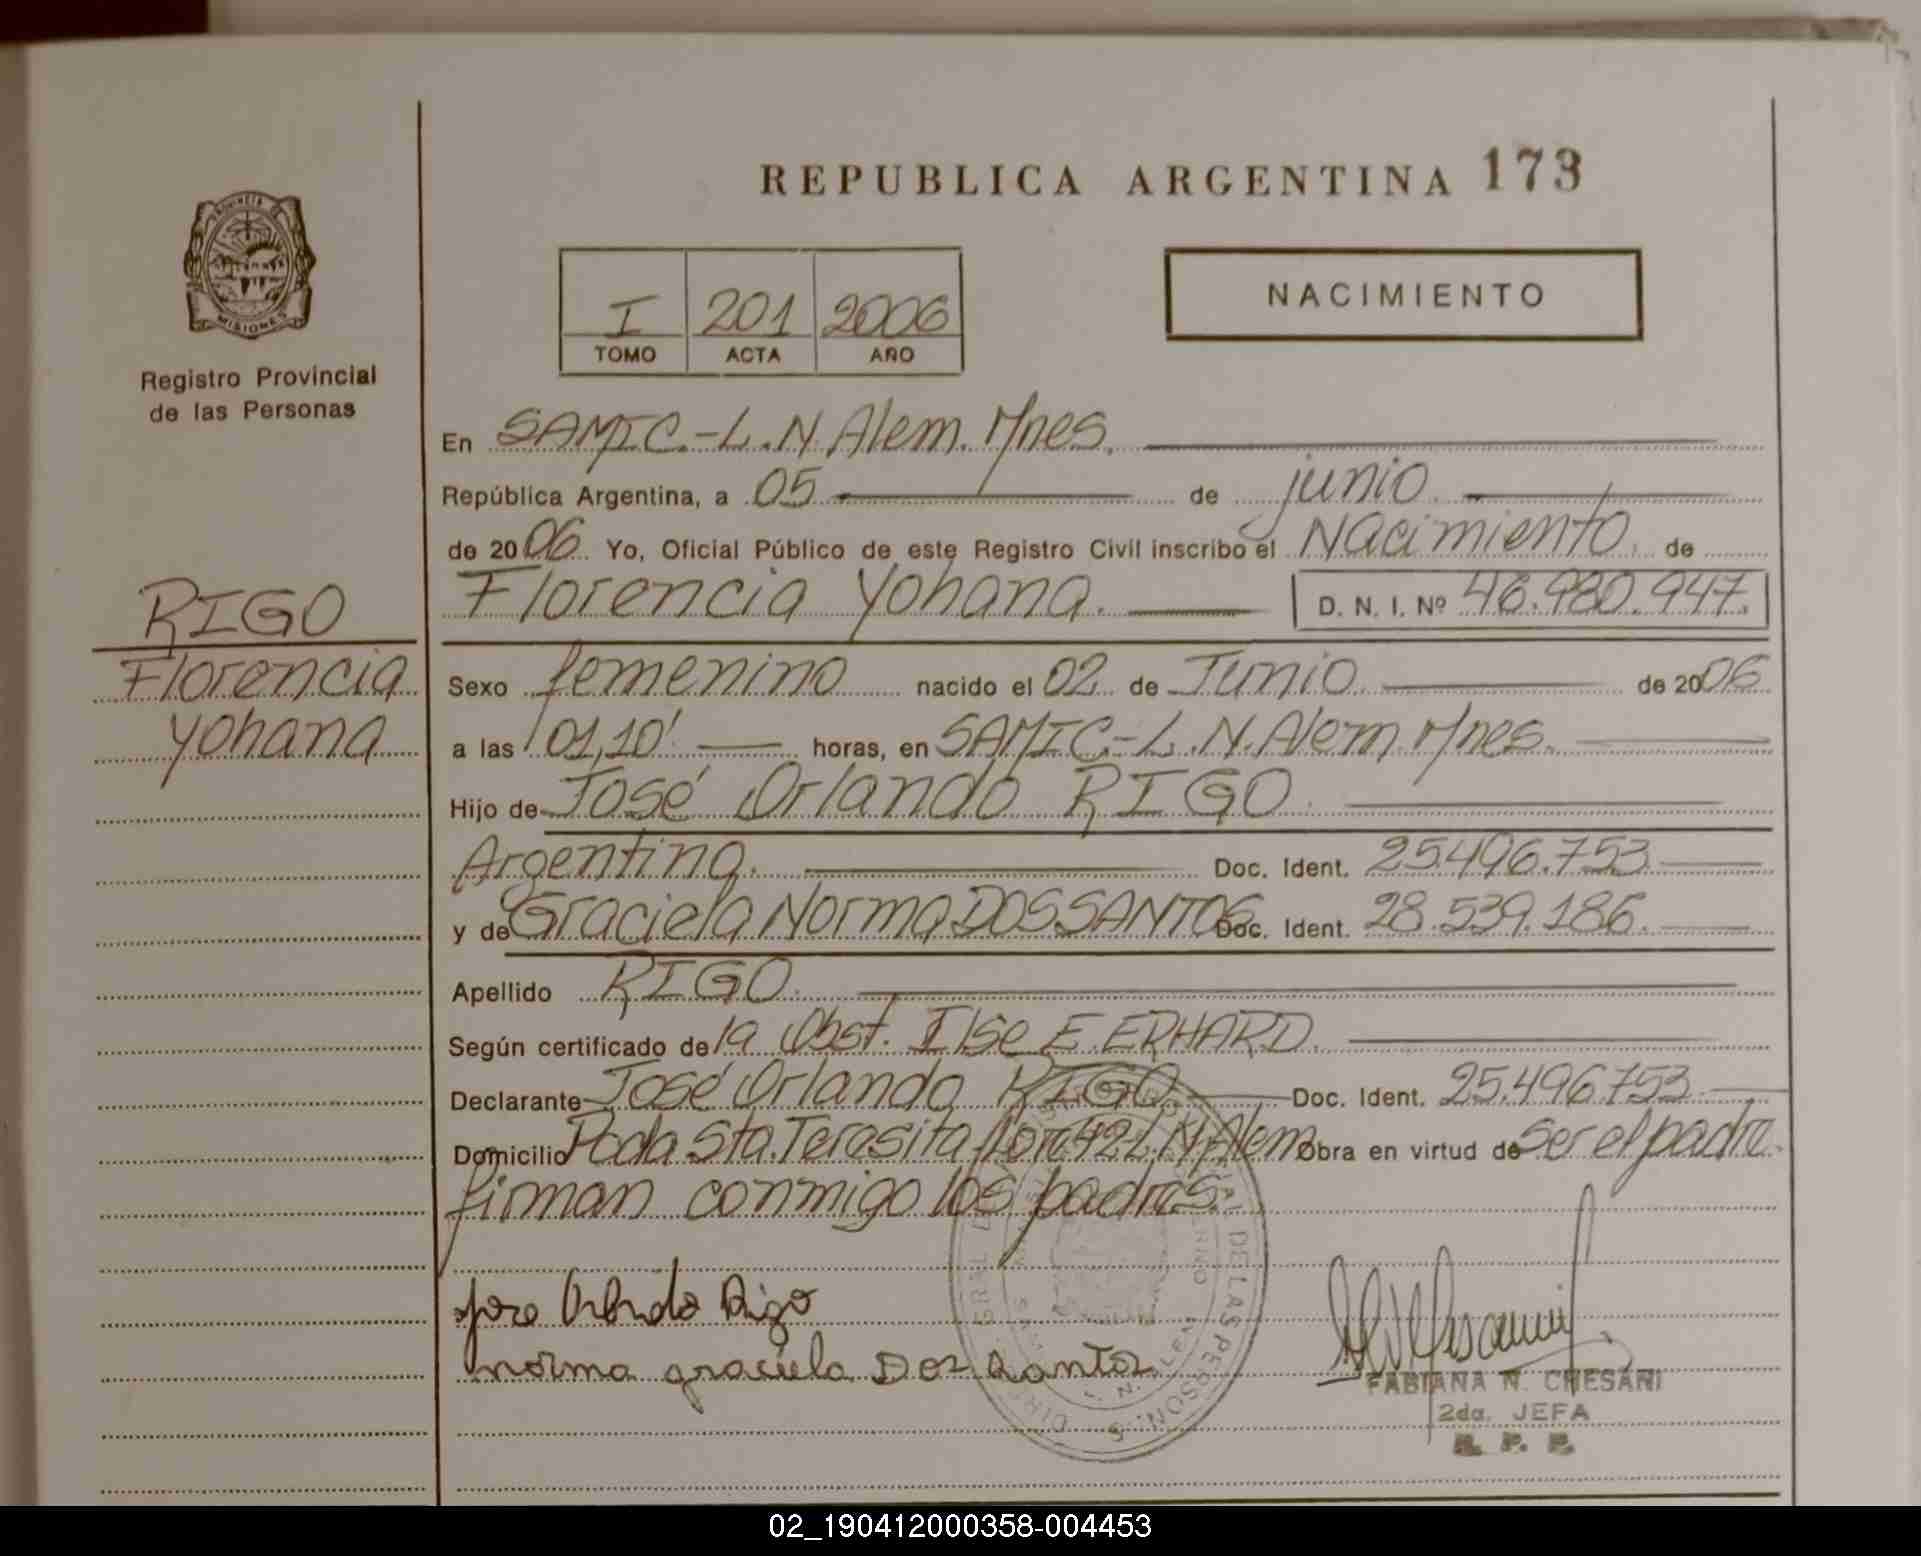 REPUBLICA ARGENTINA 173
PROVINCIA DE
MISIONES
Registro Provincial
de las Personas
I 201 2006
TOMO ACTA AÑO
NACIMIENTO
En SAMIC.-L.N.Alem.Mnes.
República Argentina, a 05 de junio.
de 2006. Yo, Oficial Público de este Registro Civil inscribo el Nacimiento. de
Florencia Yohana. D. N. I. Nº 46.980.947.
RIGO
Florencia
Yohana
Sexo femenino nacido el 02 de Junio. de 2006
a las 01,10' horas, en SAMIC.-L.N.Alem.Mnes.
Hijo de José Orlando RIGO.
Argentina. Doc. Ident. 25.496.753.
y de Graciela Norma DOS SANTOS Doc. Ident. 28.539.186.
Apellido RIGO.
Según certificado de la Obst. Ilse E. ERHARD.
Declarante José Orlando RIGO. Doc. Ident. 25.496.753
Domicilio Pcda.Sta.Teresita L.N.Alem Obra en virtud de ser el padre.
firman conmigo los padres.
Jose Orlando Rigo
norma graciela Dos Santos
DE LAS PERSONAS
FABIANA N. CHESANI
2da. JEFA
R. P. P.
02_190412000358-004453